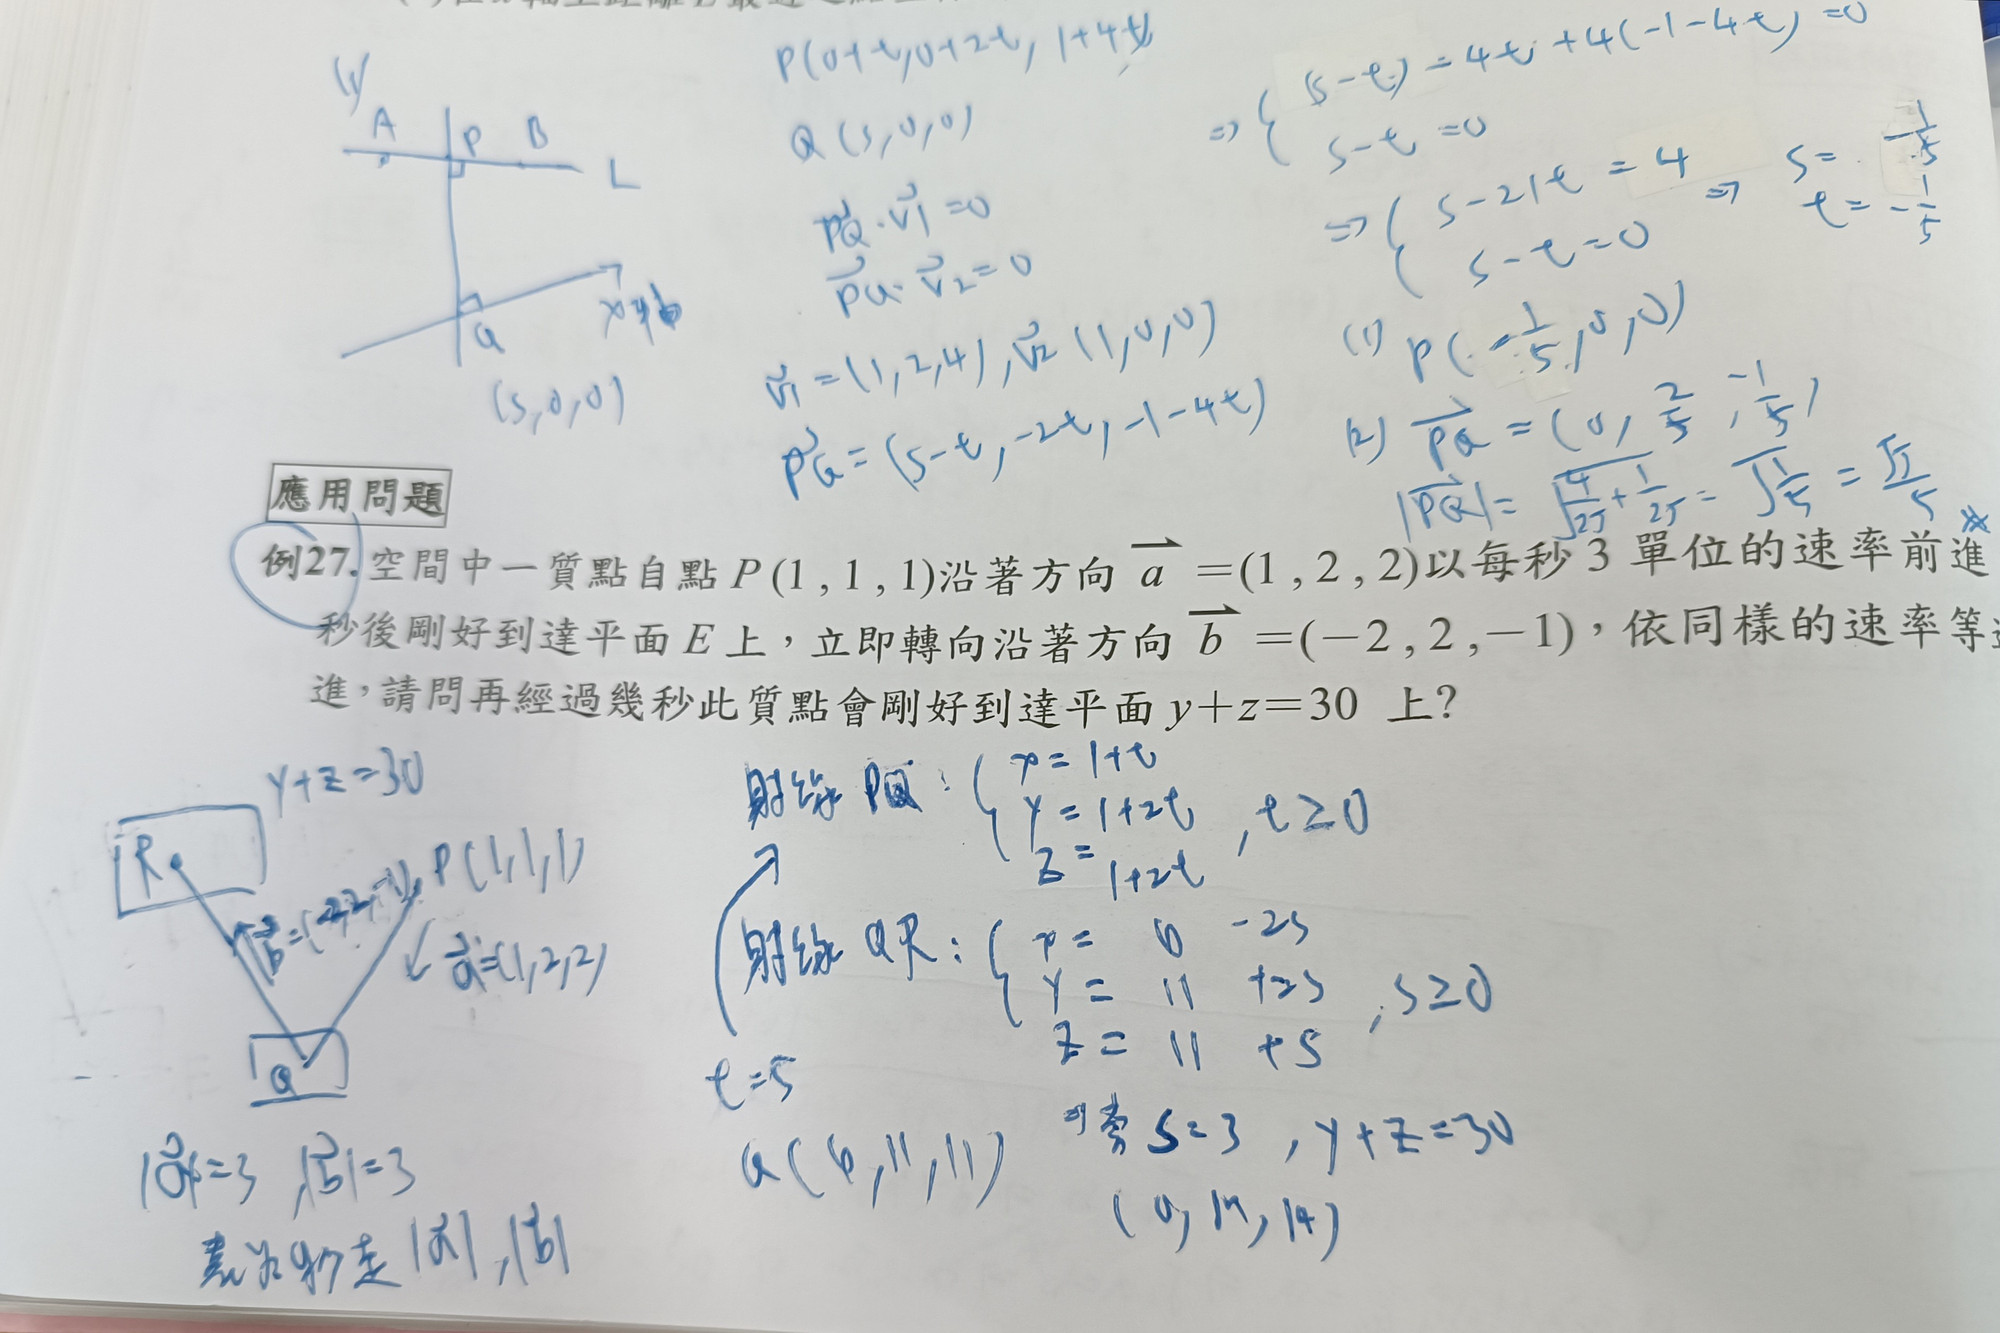 (1)
A P B L
Q x軸
(s,0,0)
P(0+t,0+2t,1+4t)
Q(s,0,0)
PQ·v1=0
PQ·v2=0
v1=(1,2,4),v2(1,0,0)
PQ=(s-t,-2t,-1-4t)
⇒{(s-t)-4t+4(-1-4t)=0
s-t=0
⇒{s-21t=4
s-t=0
⇒ s=-1/5
t=-1/5
(1) P(-1/5,0,0)
(2) PQ=(0,2/5,-1/5)
|PQ|=√(4/25+1/25)=√(1/5)=√5/5
應用問題
例27.空間中一質點自點P(1,1,1)沿著方向a=(1,2,2)以每秒3單位的速率前進
秒後剛好到達平面E上,立即轉向沿著方向b=(-2,2,-1),依同樣的速率等
進,請問再經過幾秒此質點會剛好到達平面y+z=30上?
y+z=30
R
P(1,1,1)
b=(-2,2,-1)
a=(1,2,2)
Q
|a|=3,|b|=3
走|a|,|b|
射線PQ:{x=1+t
y=1+2t,t≥0
z=1+2t
射線QR:{x=6-2s
y=11+2s,s≥0
z=11+s
t=5
Q(6,11,11)
s=3,y+z=30
(0,17,14)